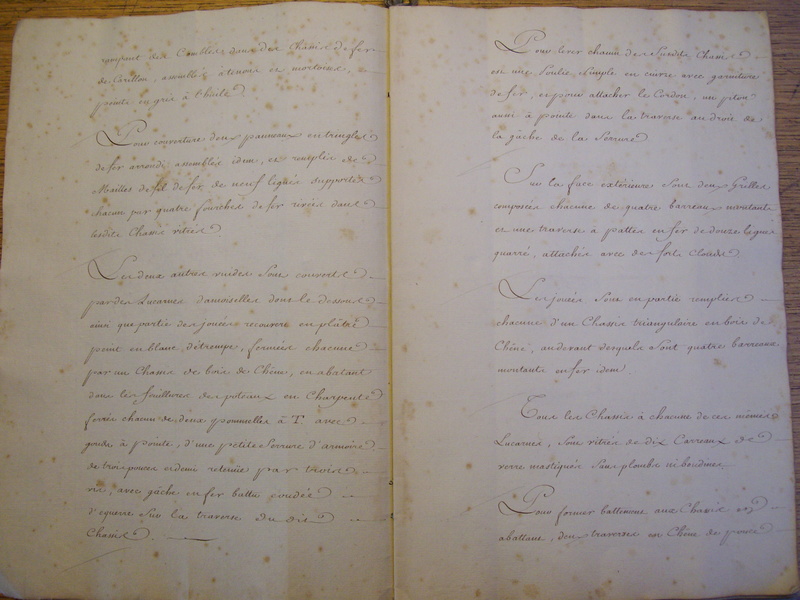 rampant des Combles dans des Chassis de fer
de Carillon, assemblés à tenons et mortoises,
peints en gris à l'huile
Pour couverture deux panneaux en tringles
de fer arrondi assemblés idem, et remplis de
Mailles de fil de fer de neuf lignes supportés
chacun par quatre fourches de fer rivées dans
lesdits Chassis vitrés
Les deux autres vuides sont couverts
par des Lucarnes damoiselles dont le dessous
ainsi que partie des jouées recouvert en plâtre
peint en blanc d'étrempe, fermées chacune
par un Chassis de bois de Chêne, en abatant
dans les feuillures de poteaux en Charpente
ferrés chacun de deux pommelles à T. avec
gonds à pointe, d'une petite Serrure d'armoire
de trois pouces et demi retenüe par trois
vis, avec gâche en fer battu coudée
d'équerre Sur la traverse du dit
Chassis.
Pour lever chacun des Susdits Chassis
est une Poulie Simple en cuivre avec garniture
de fer, et pour attacher le Cordon, un piton
aussi à pointe dans la traverse au droit de
la gâche de la Serrure
Sur la face extérieure sont deux Grilles
composées chacune de quatre barreaux montants
et une traverse à pattes en fer de douze lignes
quarré, attachés avec de forts Clouds
Les jouées Sont en partie remplies
chacune d'un Chassis triangulaire en bois de
Chêne, au devant desquels Sont quatre barreaux
montants en fer idem.
Tous les Chassis à chacune de ces mêmes
Lucarnes, Sont vitrés de dix Carreaux de
verre mastiqués Sans plombs ni boudines
Pour former battement aux Chassis en
abattant, deux traverses en Chêne de